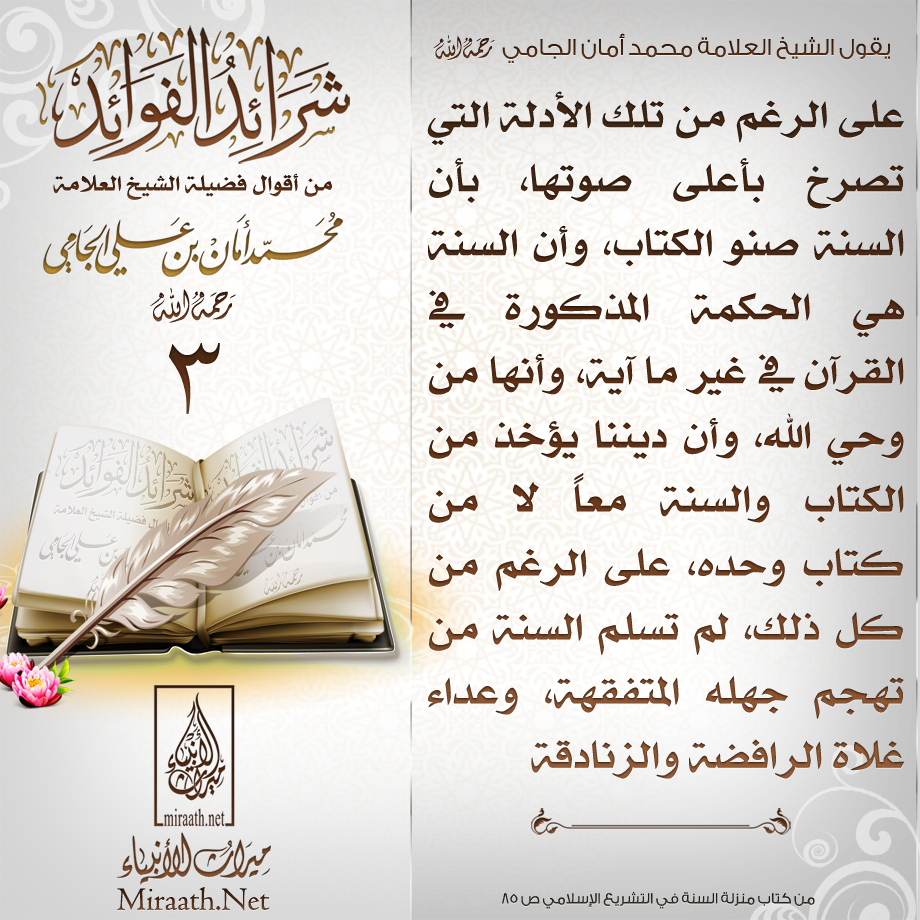 يقول الشيخ العلامة محمد أمان الجامي رحمه الله
على الرغم من تلك الأدلة التي
تصرخ بأعلى صوتها، بأن
السنة صنو الكتاب، وأن السنة
هي الحكمة المذكورة في
القرآن في غير ما آية، وأنها من
وحي الله، وأن ديننا يؤخذ من
الكتاب والسنة معاً لا من
كتاب وحده، على الرغم من
كل ذلك، لم تسلم السنة من
تهجم جهله المتفقهة، وعداء
غلاة الرافضة والزنادقة
من كتاب منزلة السنة في التشريع الإسلامي ص ٨٥
شَرَائِدُ الفَوَائِدْ
من أقوال فضيلة الشيخ العلامة
مُحَمَّد أَمَان بن عَلي الجَامي
رحمه الله
٣
شرائد الفوائد
شرائد الفوائد
من أقوال
ال فضيلة الشيخ العلامة
محمد أمان بن
بن علي الجامي
رحمه الله
ميراث الأنبياء
miraath.net
ميراث الأنبياء
Miraath.Net